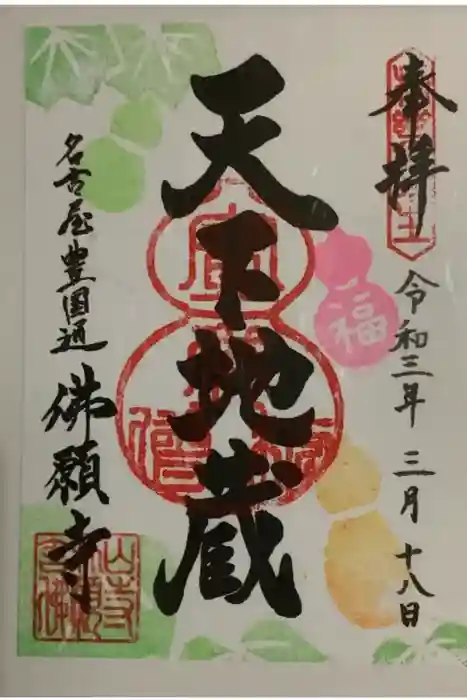 奉拝
令和三年 三月 十八日
天下地蔵
福
名古屋豊国通
佛願寺